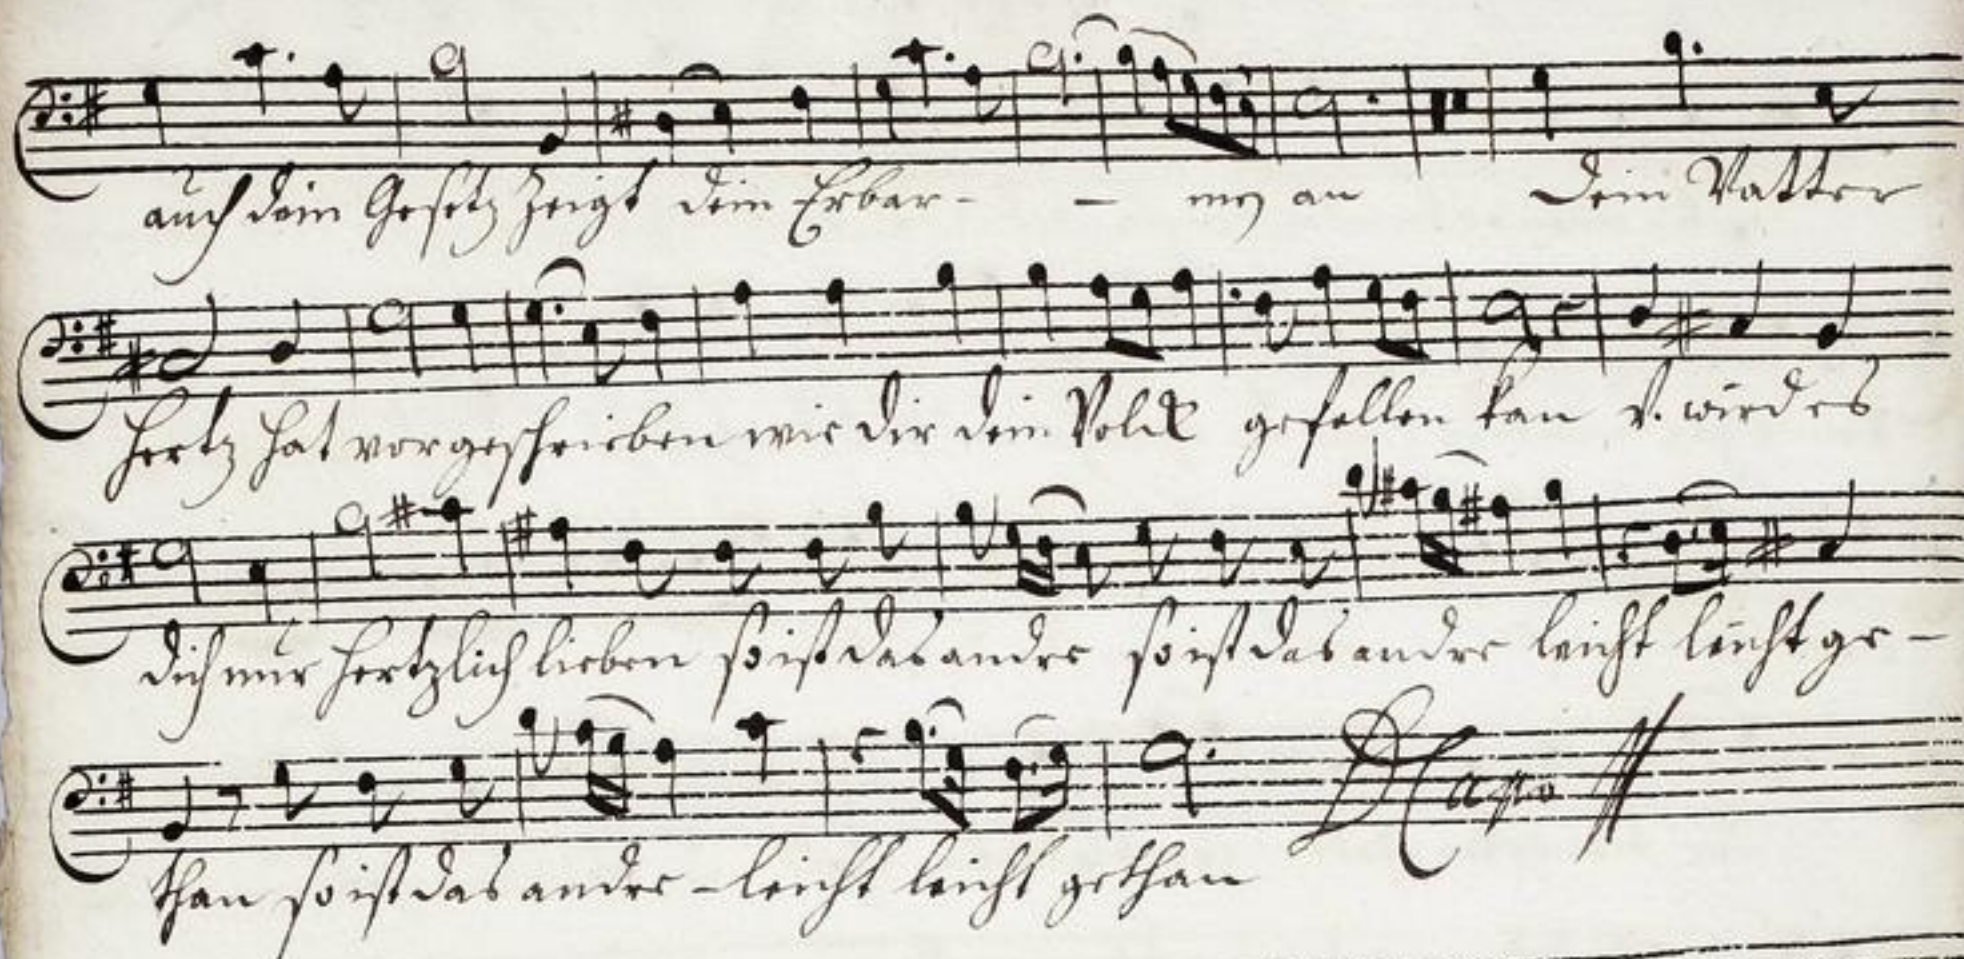 auch dein Gesetz zeigt dein Erbar- - men an Dein Vatter
Hertz hat vorgeschrieben wie dir dein Volck gefallen kan v. wird es
dich nur hertzlich lieben so ist das andre so ist das andre leicht leicht ge-
than so ist das andre - leicht leicht gethan D Capo